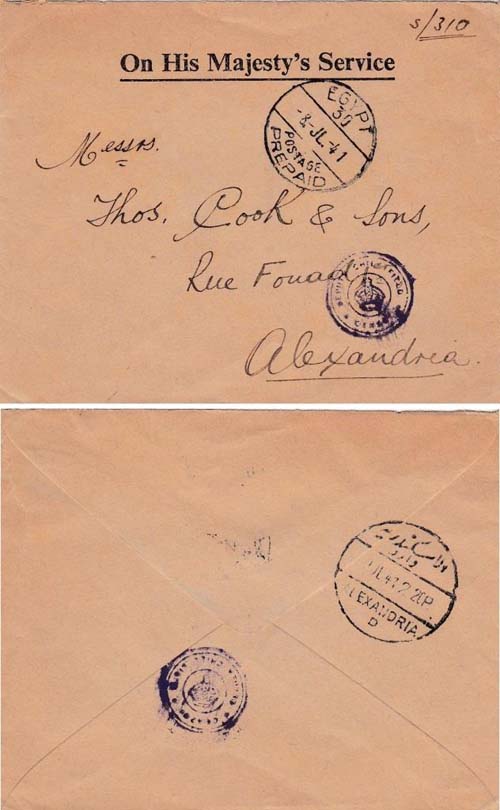 s/310
On His Majesty's Service
EGYPT
30
-8-JL-41
POSTAGE
PREPAID
Messrs.
Thos. Cook & Sons,
Rue Fouad,
Alexandria.
JL 41 2 20P
ALEXANDRIA
D